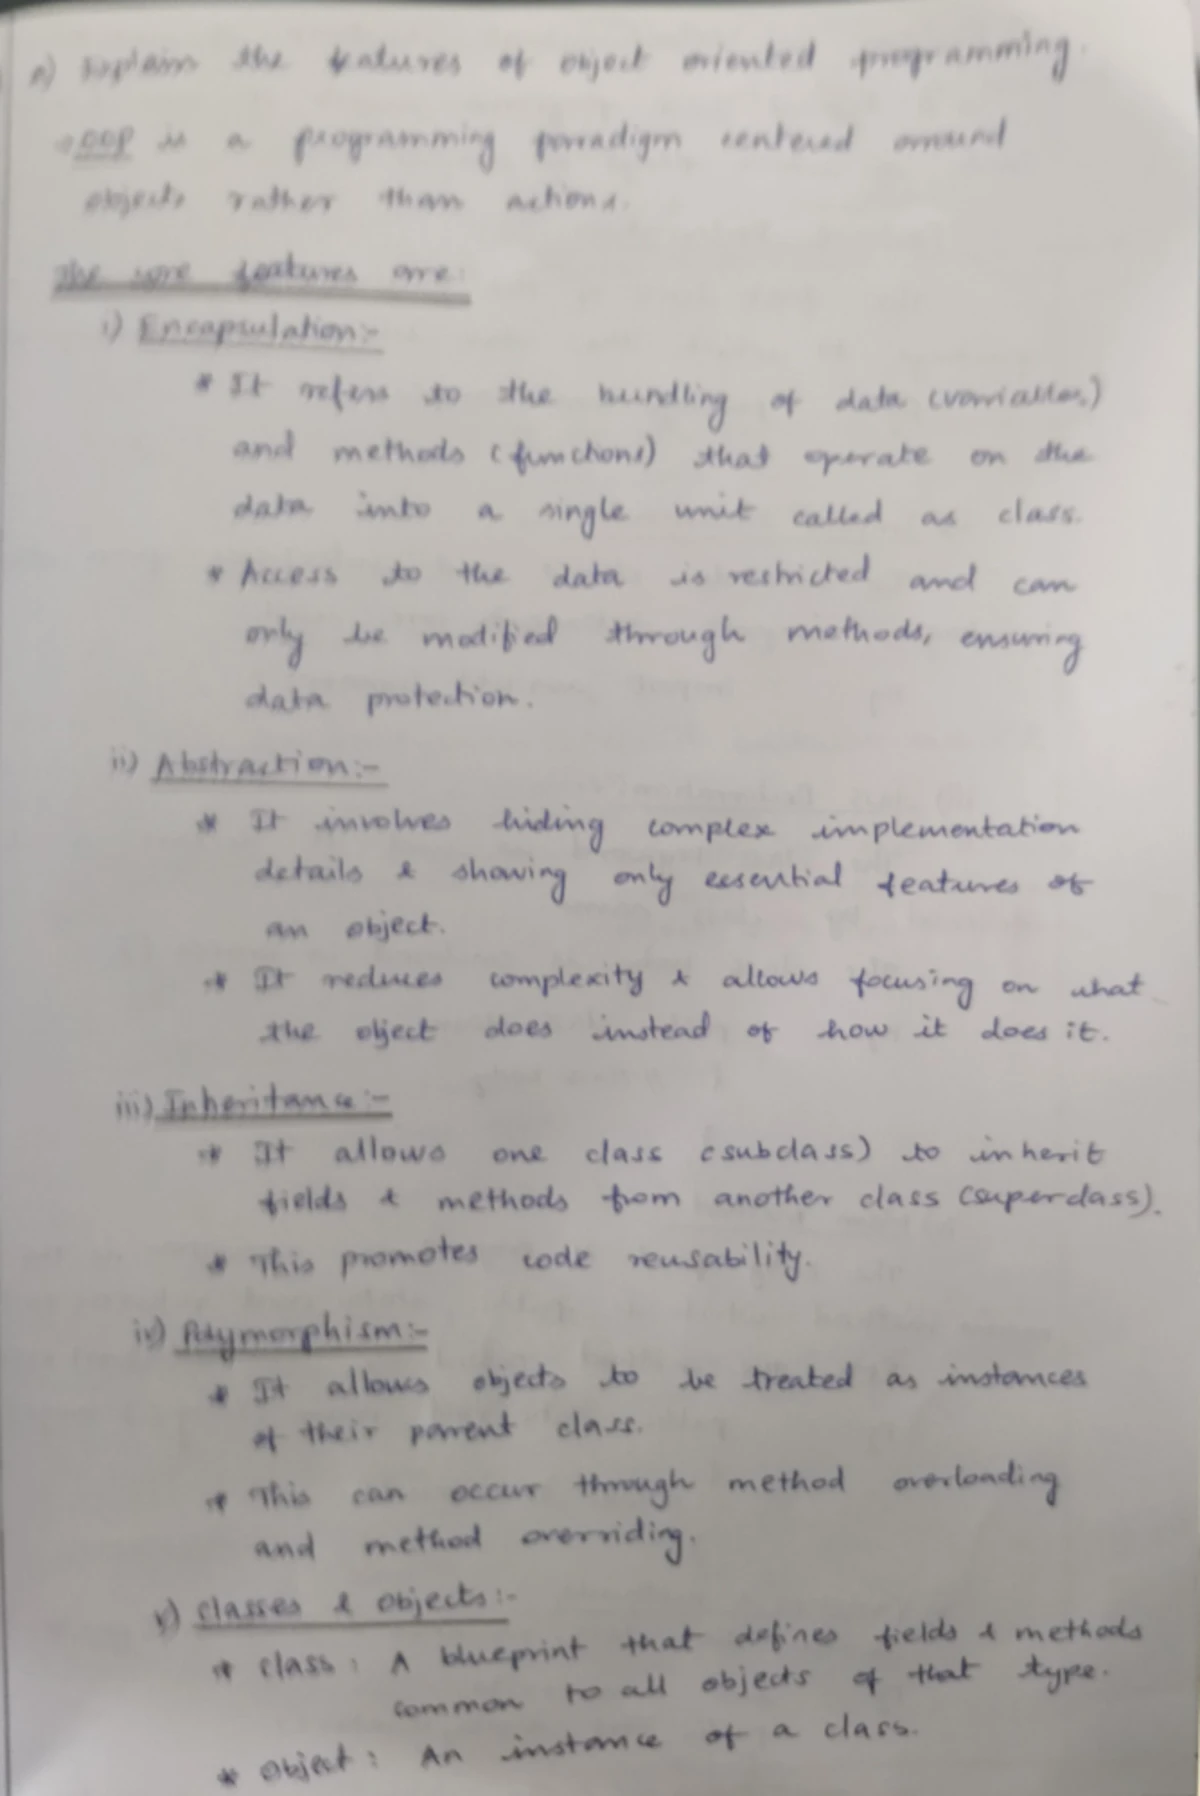 a) Explain the features of object oriented programming.
→ OOP is a programming paradigm centered around
objects rather than actions.
The core features are:
i) Encapsulation:-
* It refers to the bundling of data (variables)
and methods (functions) that operate on the
data into a single unit called as class.
* Access to the data is restricted and can
only be modified through methods, ensuring
data protection.
ii) Abstraction:-
* It involves hiding complex implementation
details & showing only essential features of
an object.
* It reduces complexity & allows focusing on what
the object does instead of how it does it.
iii) Inheritance:-
* It allows one class (subclass) to inherit
fields & methods from another class (superclass).
* This promotes code reusability.
iv) Polymorphism:-
* It allows objects to be treated as instances
of their parent class.
* This can occur through method overloading
and method overriding.
v) Classes & Objects:-
* Class: A blueprint that defines fields & methods
common to all objects of that type.
* Object: An instance of a class.